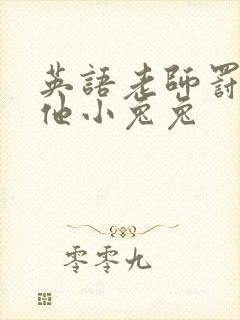 英語老師罰
他小兔兔
零零九